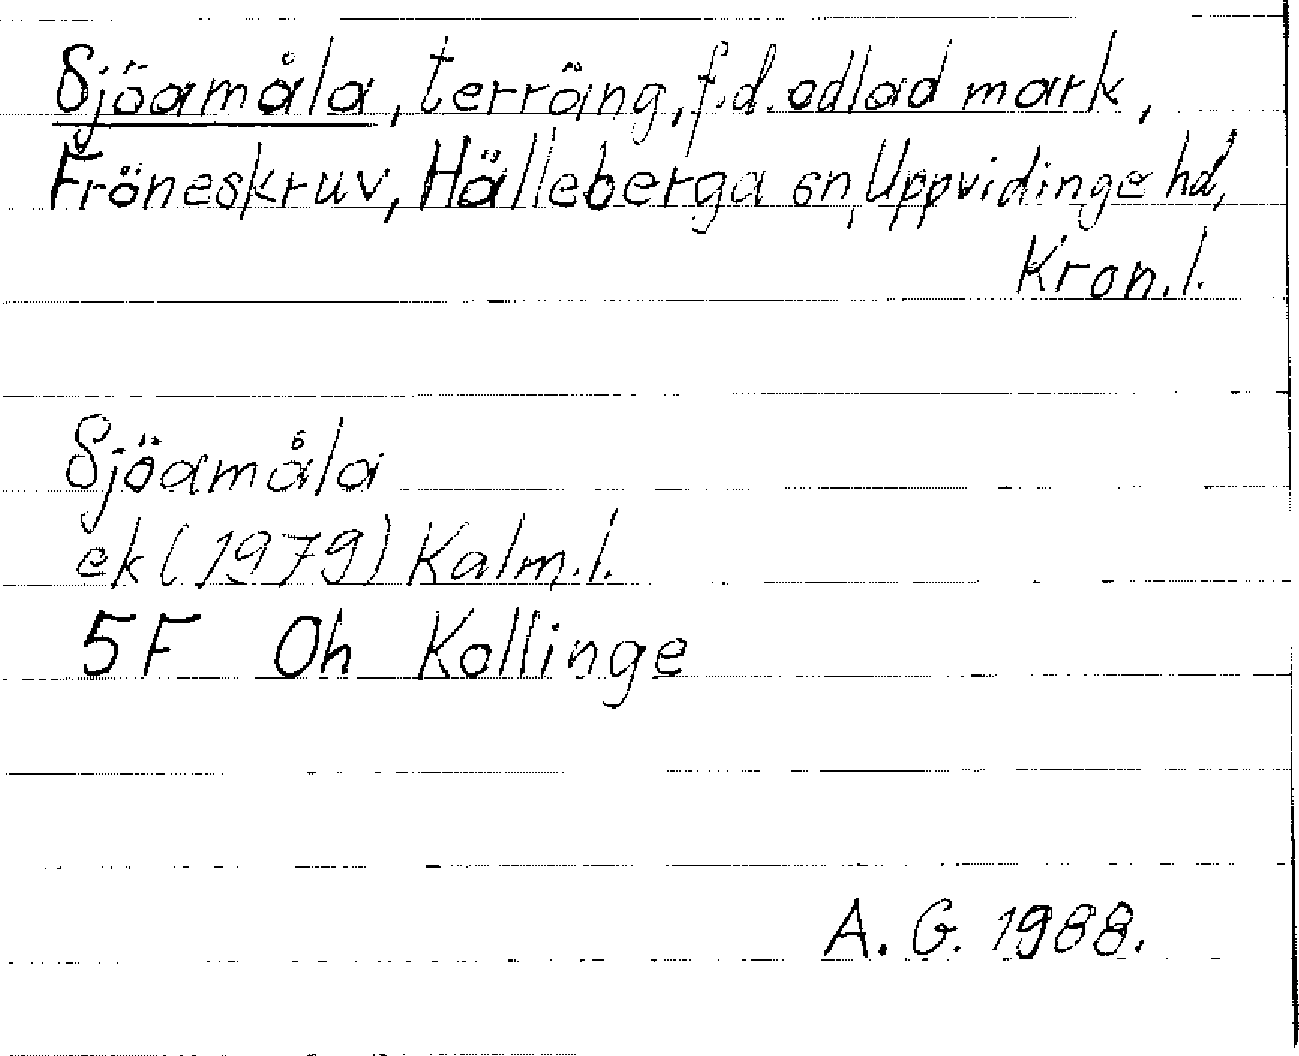 Sjöamåla, terräng, f.d. odlad mark,
Fröneskruv, Hälleberga sn, Uppvidinge hd,
Kron.l.
Sjöamåla
ek (1979) Kalm.l.
5F Oh Kollinge
A. G. 1988.